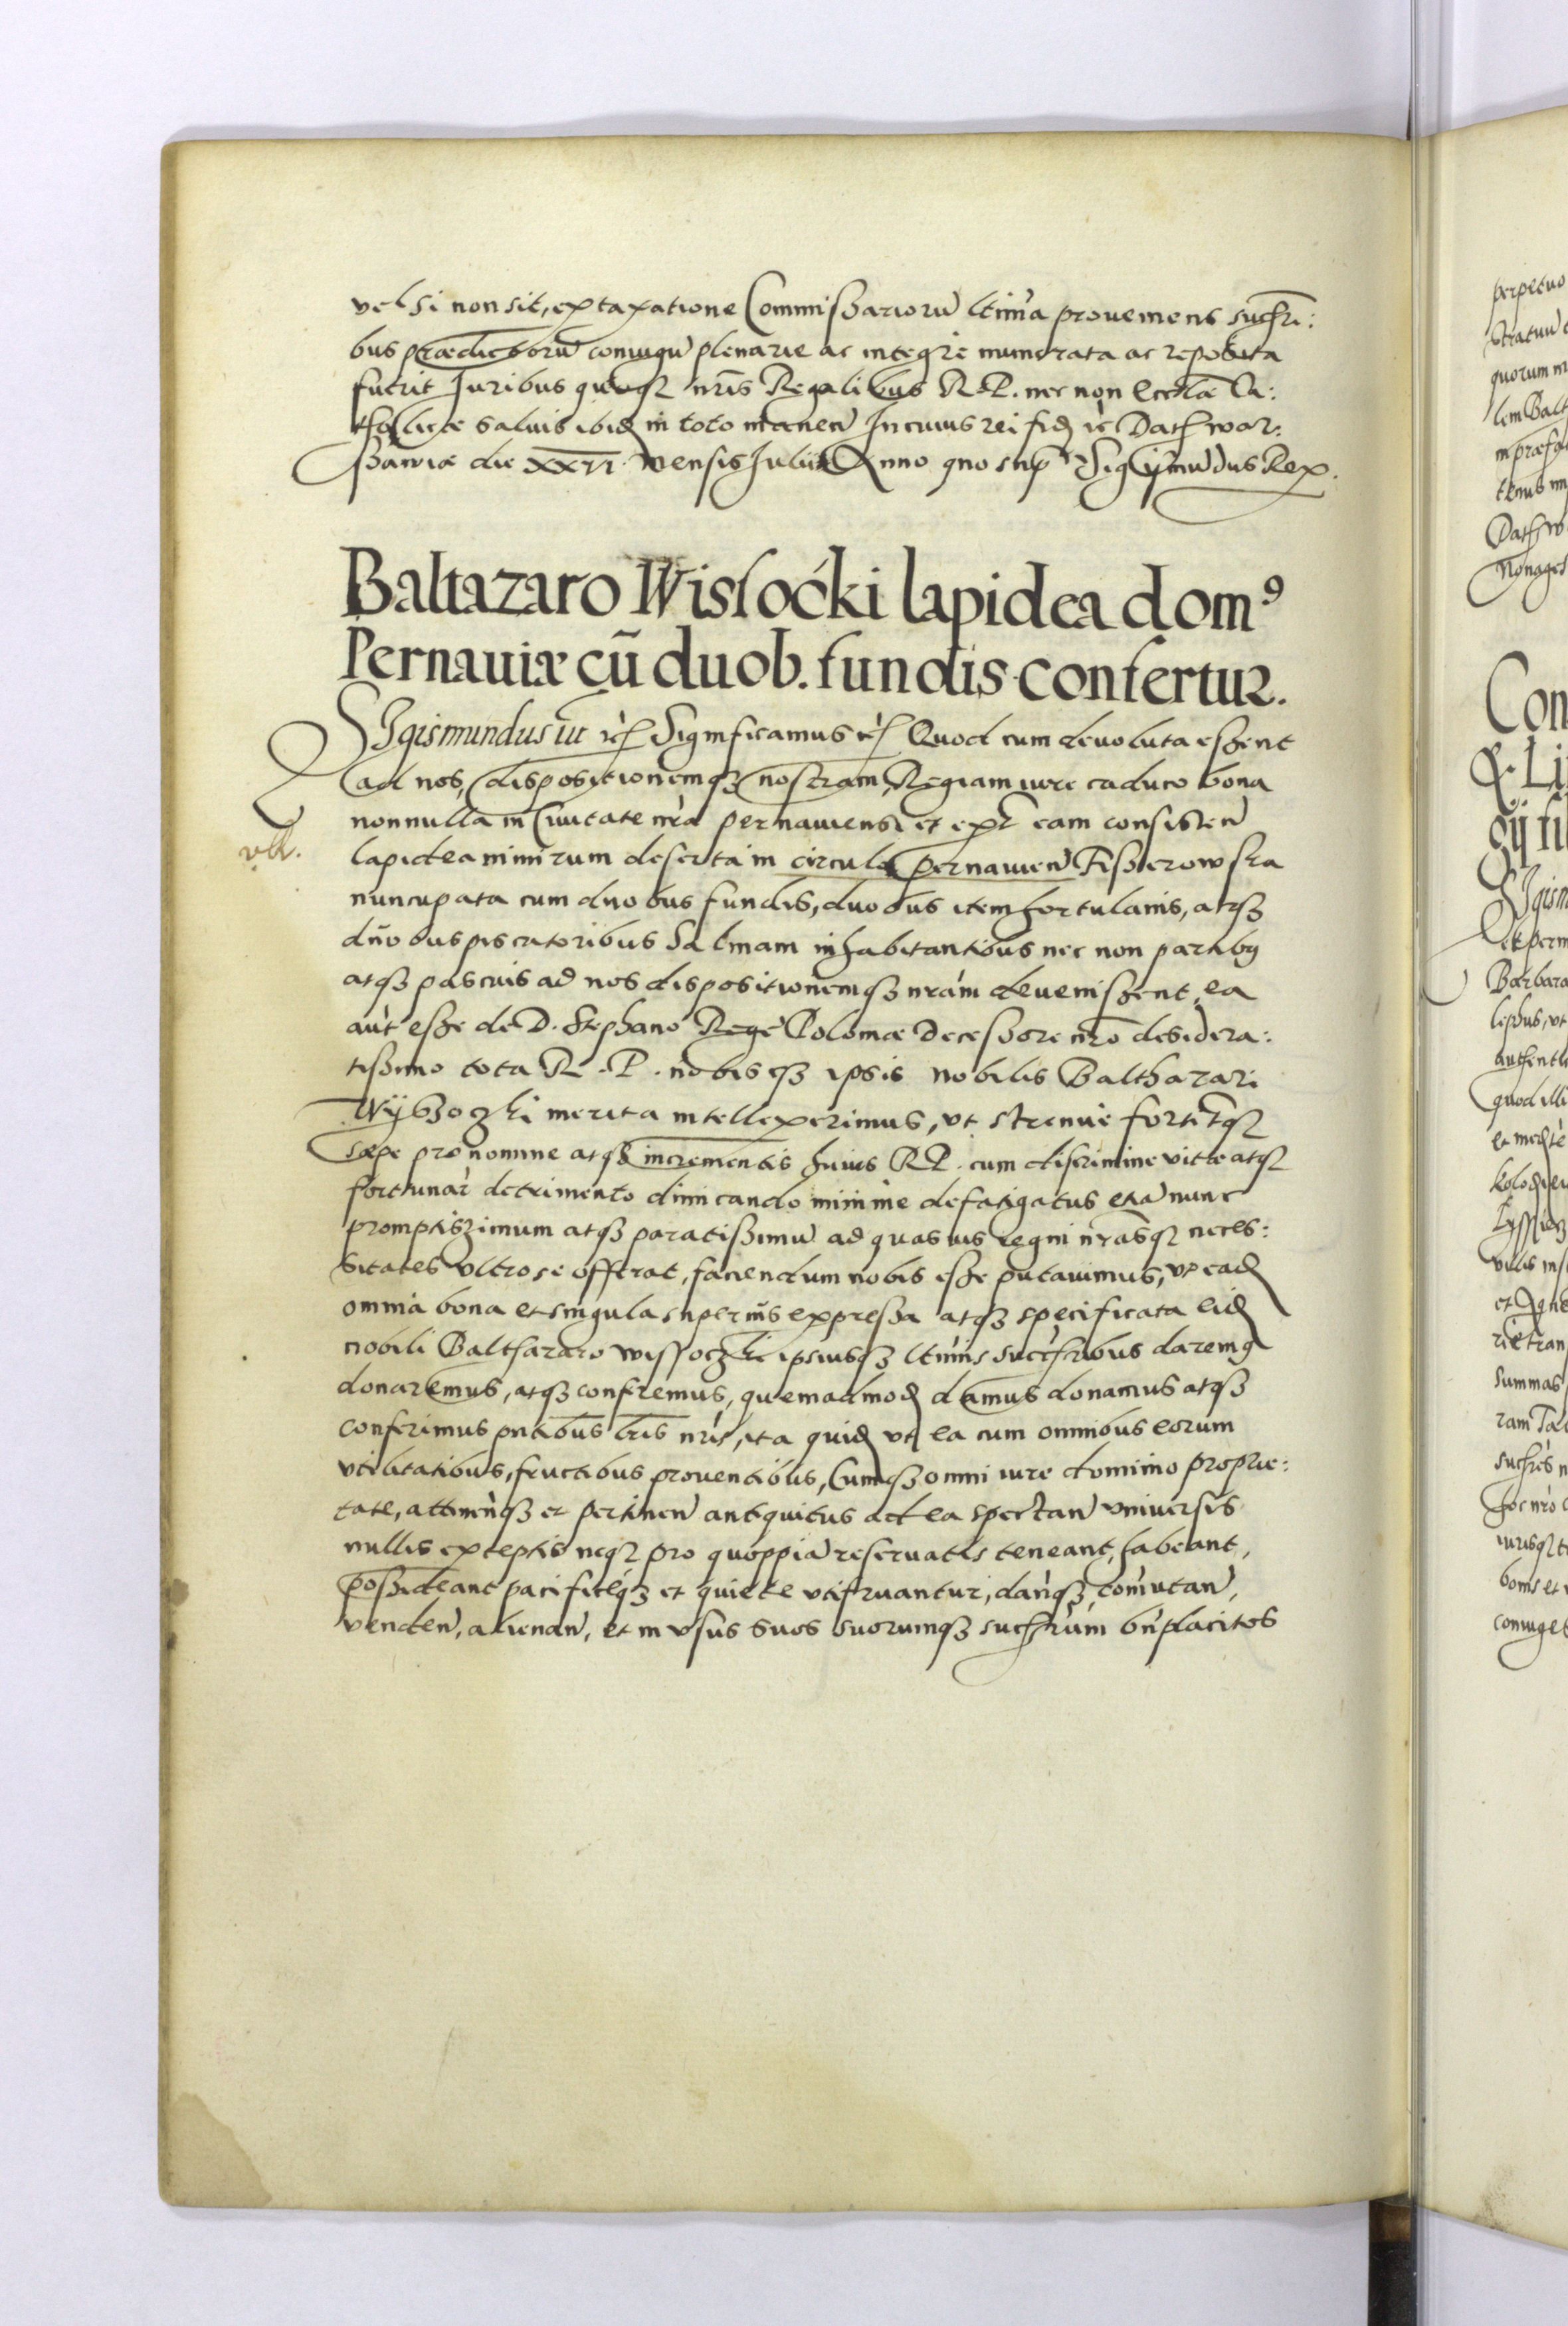 vel si non sit, ex taxatione Commissariorũ ltima proueniens sucſsri:
bus prædictorũ coniugũ plenarie ac integre numerata ac reposita
fuerit Juribus quoqȝ nr̃is Regalibus R.P. nec non Eccłæ Ca:
tholicæ saluis ibid in toto manen̄ In cuius rei fid ec̃ Dat war:
ſzawiæ die XXVI. Mensis Julii Anno quo sup̃ Sigiſmũdus Rex.
Baltazaro Wisłoćki lapidea domꝰ
Pernauiæ cũ duob. fundis confertur.
SIgismundus iii ec̃ Significamus ec̃ Quod cum deuoluta eſzent
ad nos, dispositionemqȝ nostram Regiam iure caduco bona
nonnulla in Ciuitate nr̃a pernauiensi et extr̃ eam consisten̄
lapidea nimirum deserta in circulo pernauien̄ Fiſzerowska
nuncupata cum duobus fundis, duobus item hortulanis, atqȝ
duobus piscatoribus Salmam inhabitantibus nec non pratibꝰ
atqȝ pascuis ad nos dispositionemqȝ nrãm deueniſzent, ea
aũt eſze de D. Stephano Rege Poloniæ Deceſzore nr̃o desidera:
tiſzimo tota R.P. nobisqȝ ipsis nobilis Balthazari
Wÿſzoczki merita intellexerimus, vt strenue fortitẽqȝ
sæpe pro nomine atqȝ incrementis huius RP. cum discrimine vitæ atqȝ
fortunar̃ detrimento dimicando minime defatigatus etiã nunc
promptiſzimum atqȝ paratiſzimũ ad quasuis regni nr̃asqȝ neces:
sitates vltro se offerat, faciendum nobis eſze putauimus, vt ead
omnia bona et singula superiũs expreſza atqȝ specificata eid
nobili Balthazaro wiſſoczki ipsiusqȝ ltimis sucſsribus daremꝰ
donaremus, atqȝ conferemus, quemadmod damus donamus atqȝ
conferimus pn̄tibus lr̃is nr̃is, ita quid vt ea cum omnibus eorum
vtilitatibus, fructibus prouentibus, Cumqȝ omni iure dominio proprie:
tate, attinen̄qȝ et pertinen̄ antiquitus ad ea spectan̄ vniuersis
nullis exceptis neqȝ pro quoppiã reseruatis teneant, habeant,
poſzideant pacificeqȝ et quiete vtifruantur, dan̄qȝ, comutan̄,
venden̄, alienan̄, et in vsus suos suorumqȝ sucſsrum bn̄placitos